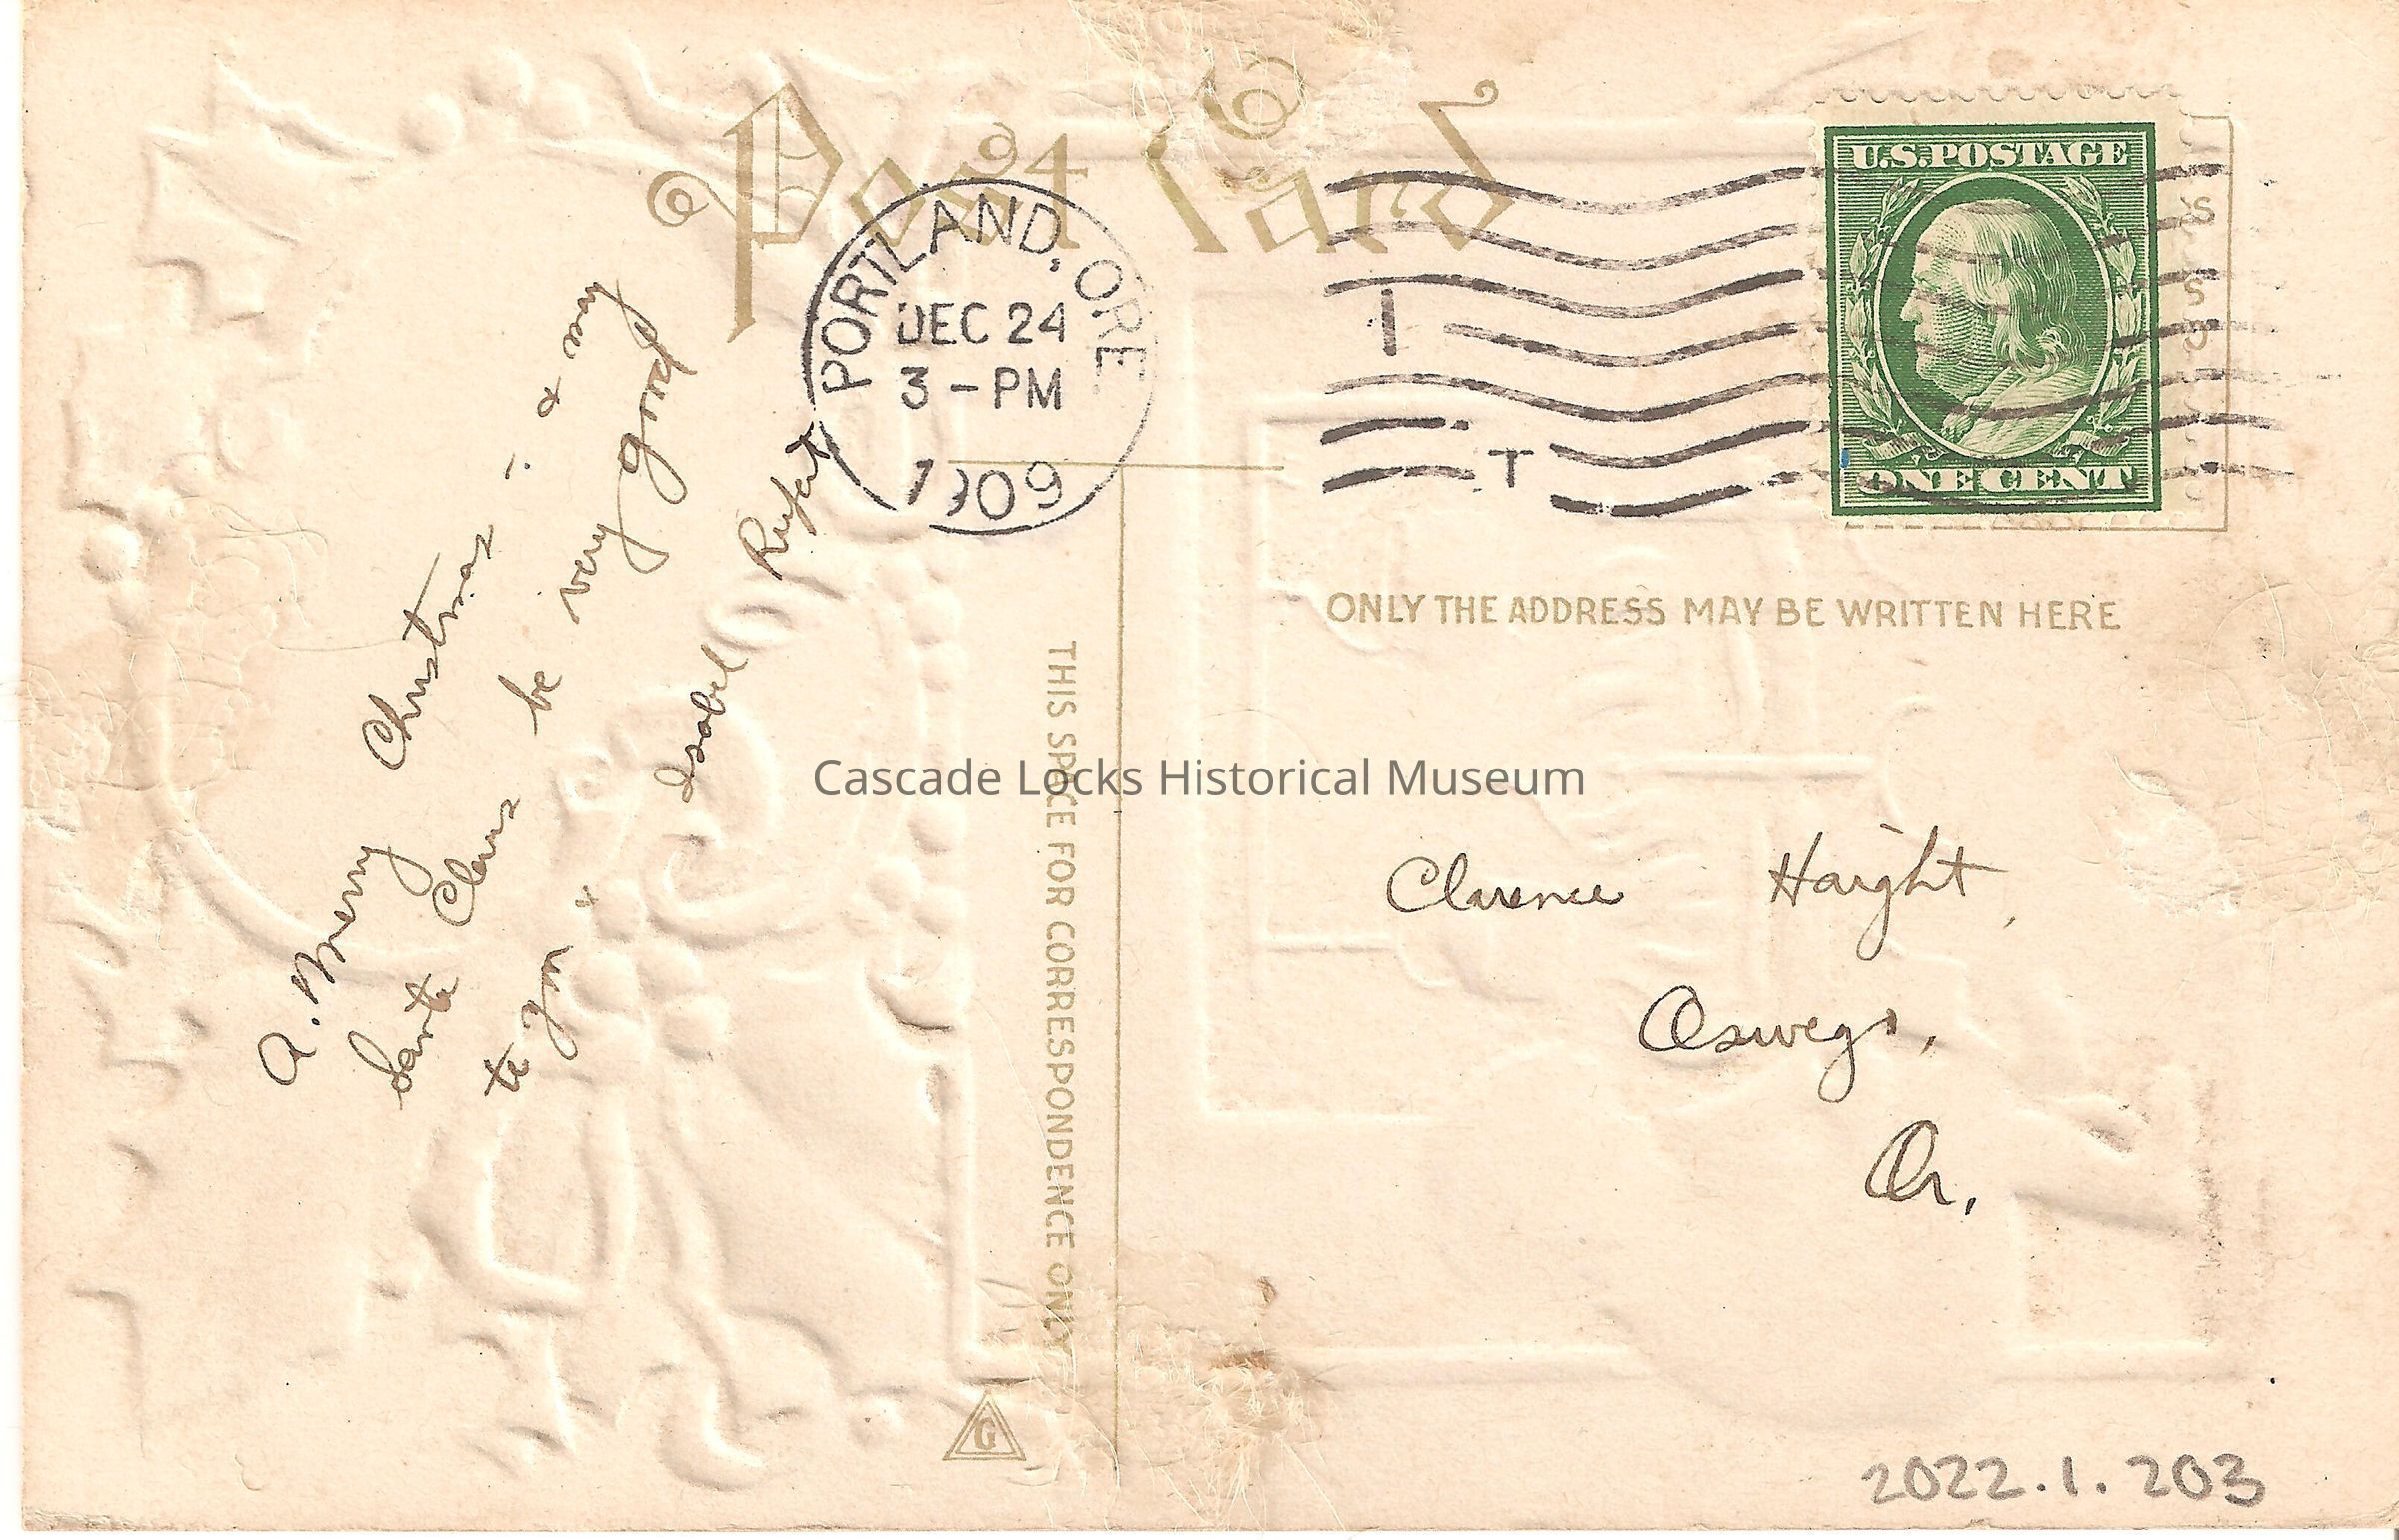 Post Card
PORTLAND, ORE
DEC 24
3-PM
1909
T
U.S. POSTAGE
ONE CENT
ONLY THE ADDRESS MAY BE WRITTEN HERE
THIS SPACE FOR CORRESPONDENCE ONLY
A. Merry Christmas - & may
Santa Claus be very good
to you.
Isabel
Clarence Haight,
Oswego,
Or.
G
2022.1.203
Cascade Locks Historical Museum